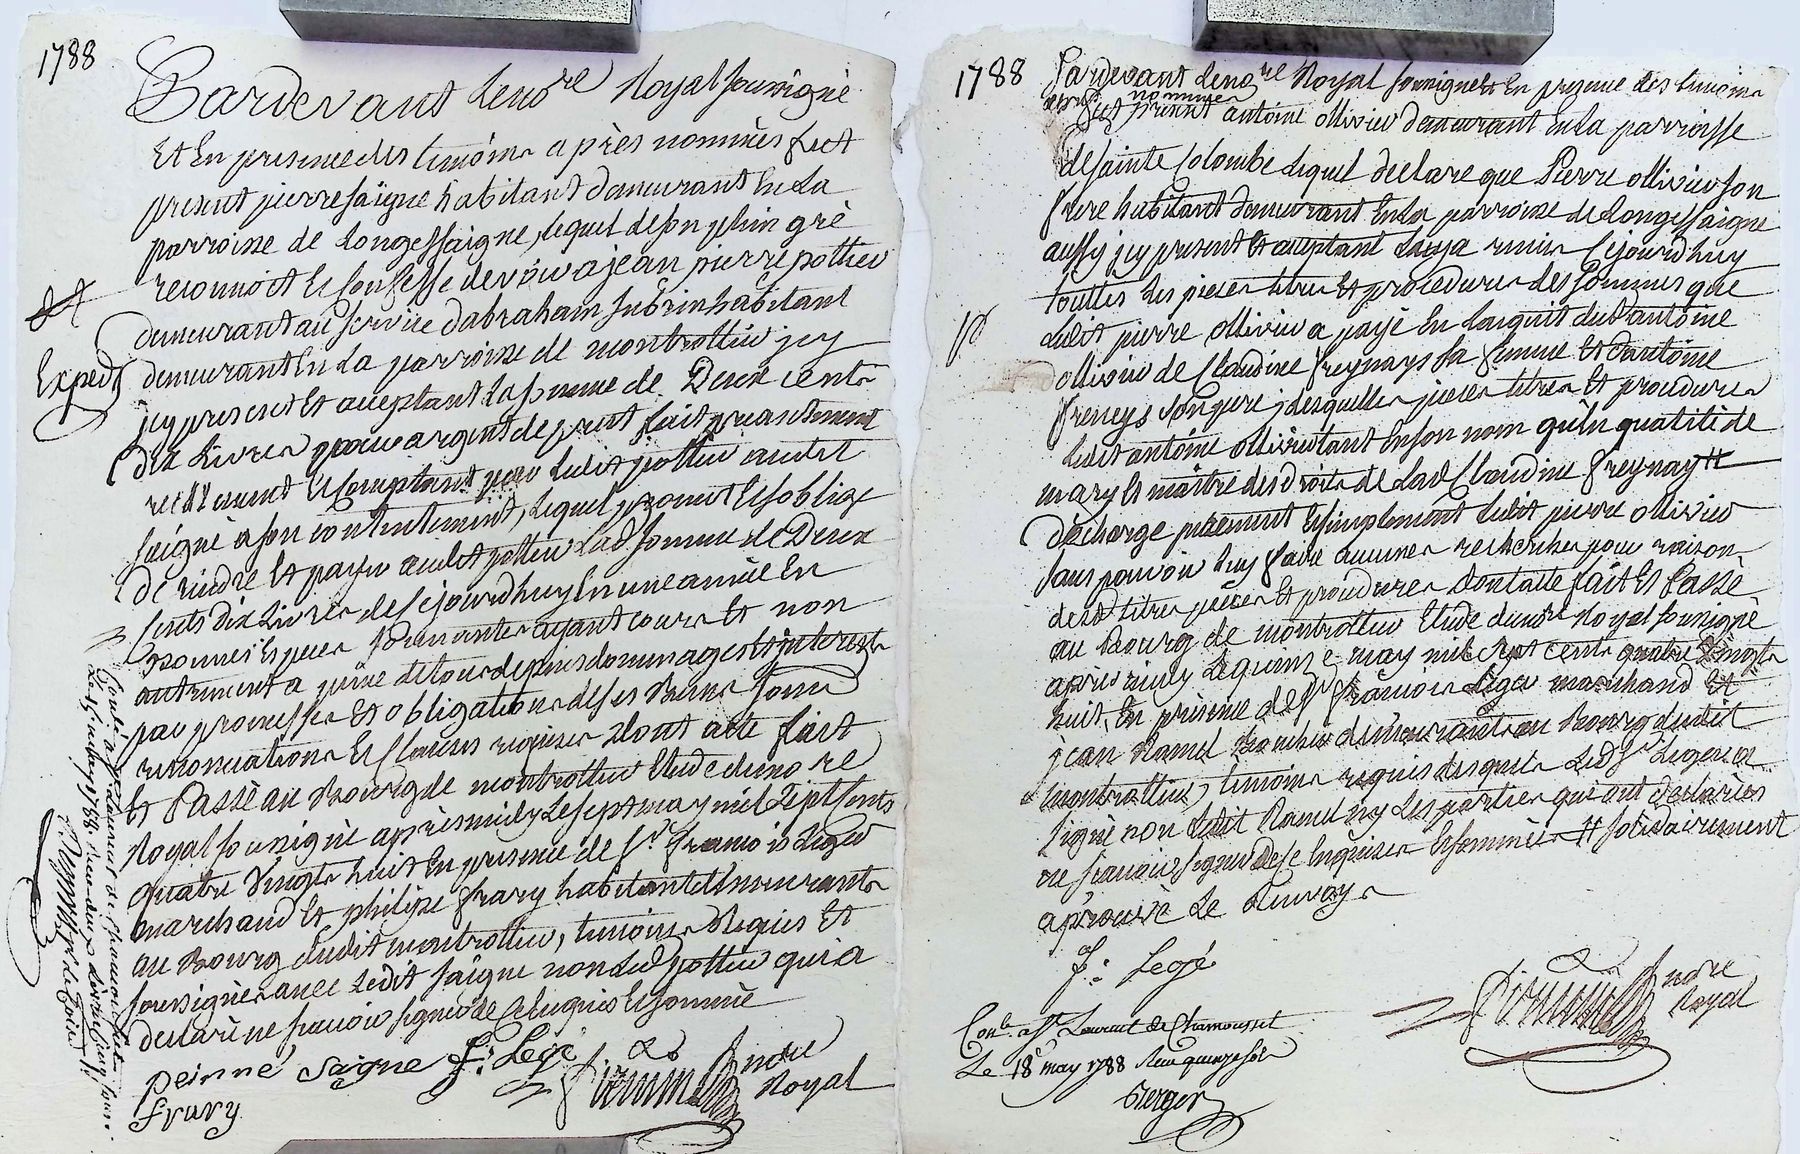 1788
Pardevant le no.re Royal soussigné
Et En presence des temoins après nommés fut
present pierre saigne habitant demeurant En La
parroisse de Longessaigne, lequel de son plein gré
reconnoit Et Confesse devoir a jean pierre pottier
demeurant au service d'abraham subrin habitant
demeurant En La parroisse de montrottier jcy
jcy present Et aceptant La somme de Deux cents
dix Livres pour argent de prest fait presentement
reellement Et Comptant par ledit pottier audit
saigne a son contentement, lequel promet Et soblige
de rendre Et payer audit pottier Lad somme de Deux
Cents dix Livres de Cejourdhuy En une année En
bonnes Especes sonnantes ayant cours Et non
autrement a peine de tous depens dommages Et interests
par promesses Et obligations de ses Biens soumis
renonciations Et Clauses requises dont acte fait
Et Passé au Bourg de montrottier Etude du no re
Royal soussigné après midy Le sept may mil Sept Cents
quatre vingts huit En presence de Sr. françois Legé
marchand Et philipe frary habitants demeurants
au Bourg dudit montrottier, temoins Requis Et
soussignés avec Ledit saigne non Led pottier qui a
declaré ne scavoir signer de Ce Enquis Et sommé
peirre saigne f: Legé
frary
no.re Royal
Expedt
Controllé
Le
may 1788
1788
Pardevant le no.re Royal soussigné Et En presence des temoins
après nommés
fut present antoine ollivier demeurant En La parroisse
de sainte Colombe Lequel declare que Pierre ollivier son
frere habitant demeurant En La parroisse de Longessaigne
aussy jcy present Et aceptant Luy a remis Cejourdhuy
touttes les pieces titres Et procedures des sommes que
ledit pierre ollivier a payé En Lacquit dudt antoine
ollivier de Claudine freynays sa femme Et dantoine
freneys son pere, desquelles pieces titres Et procedures
Ledit antoine ollivier tant En son nom qu'En qualité de
mary Et maître des droits de Lad Claudine freynay #
décharge purement Et simplement ledit pierre ollivier
sans pouvoir luy faire aucunes recherches pour raison
desd titres pieces Et procedures dont acte fait Et Passé
au Bourg de montrottier Etude du no.re Royal soussigné
après midy Le quinze may mil Sept cents quatre vingts
huit En présence de Sr françois Legé marchand Et
jean Ramel Boucher demeurants au Bourg dudit
montrottier, temoins requis desquels Led Sr Legé a
signé non ledit Ramel ny Les parties qui ont declarés
ne scavoir signer de Ce Enquises Et sommées # solidairement
aprouvé Le Renvoy
f: Legé
no.re Royal
Conlé. à St Laurent de Chamousset
Le 18 may 1788 Recu quinze sols
Berger